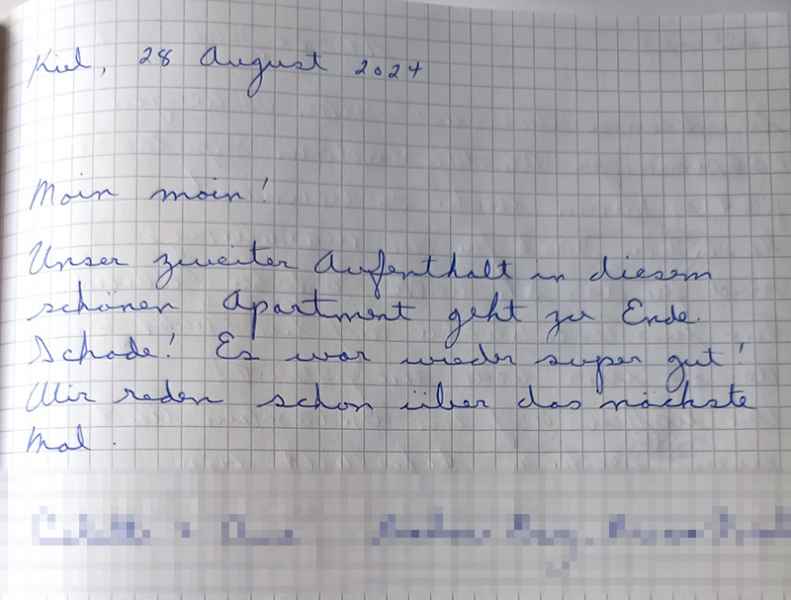 Kiel, 28 August 2024
Moin moin!
Unser zweiter Aufenthalt in diesem
schönen Apartment geht zu Ende.
Schade! Es war wieder super gut!
Wir reden schon über das nächste
Mal.